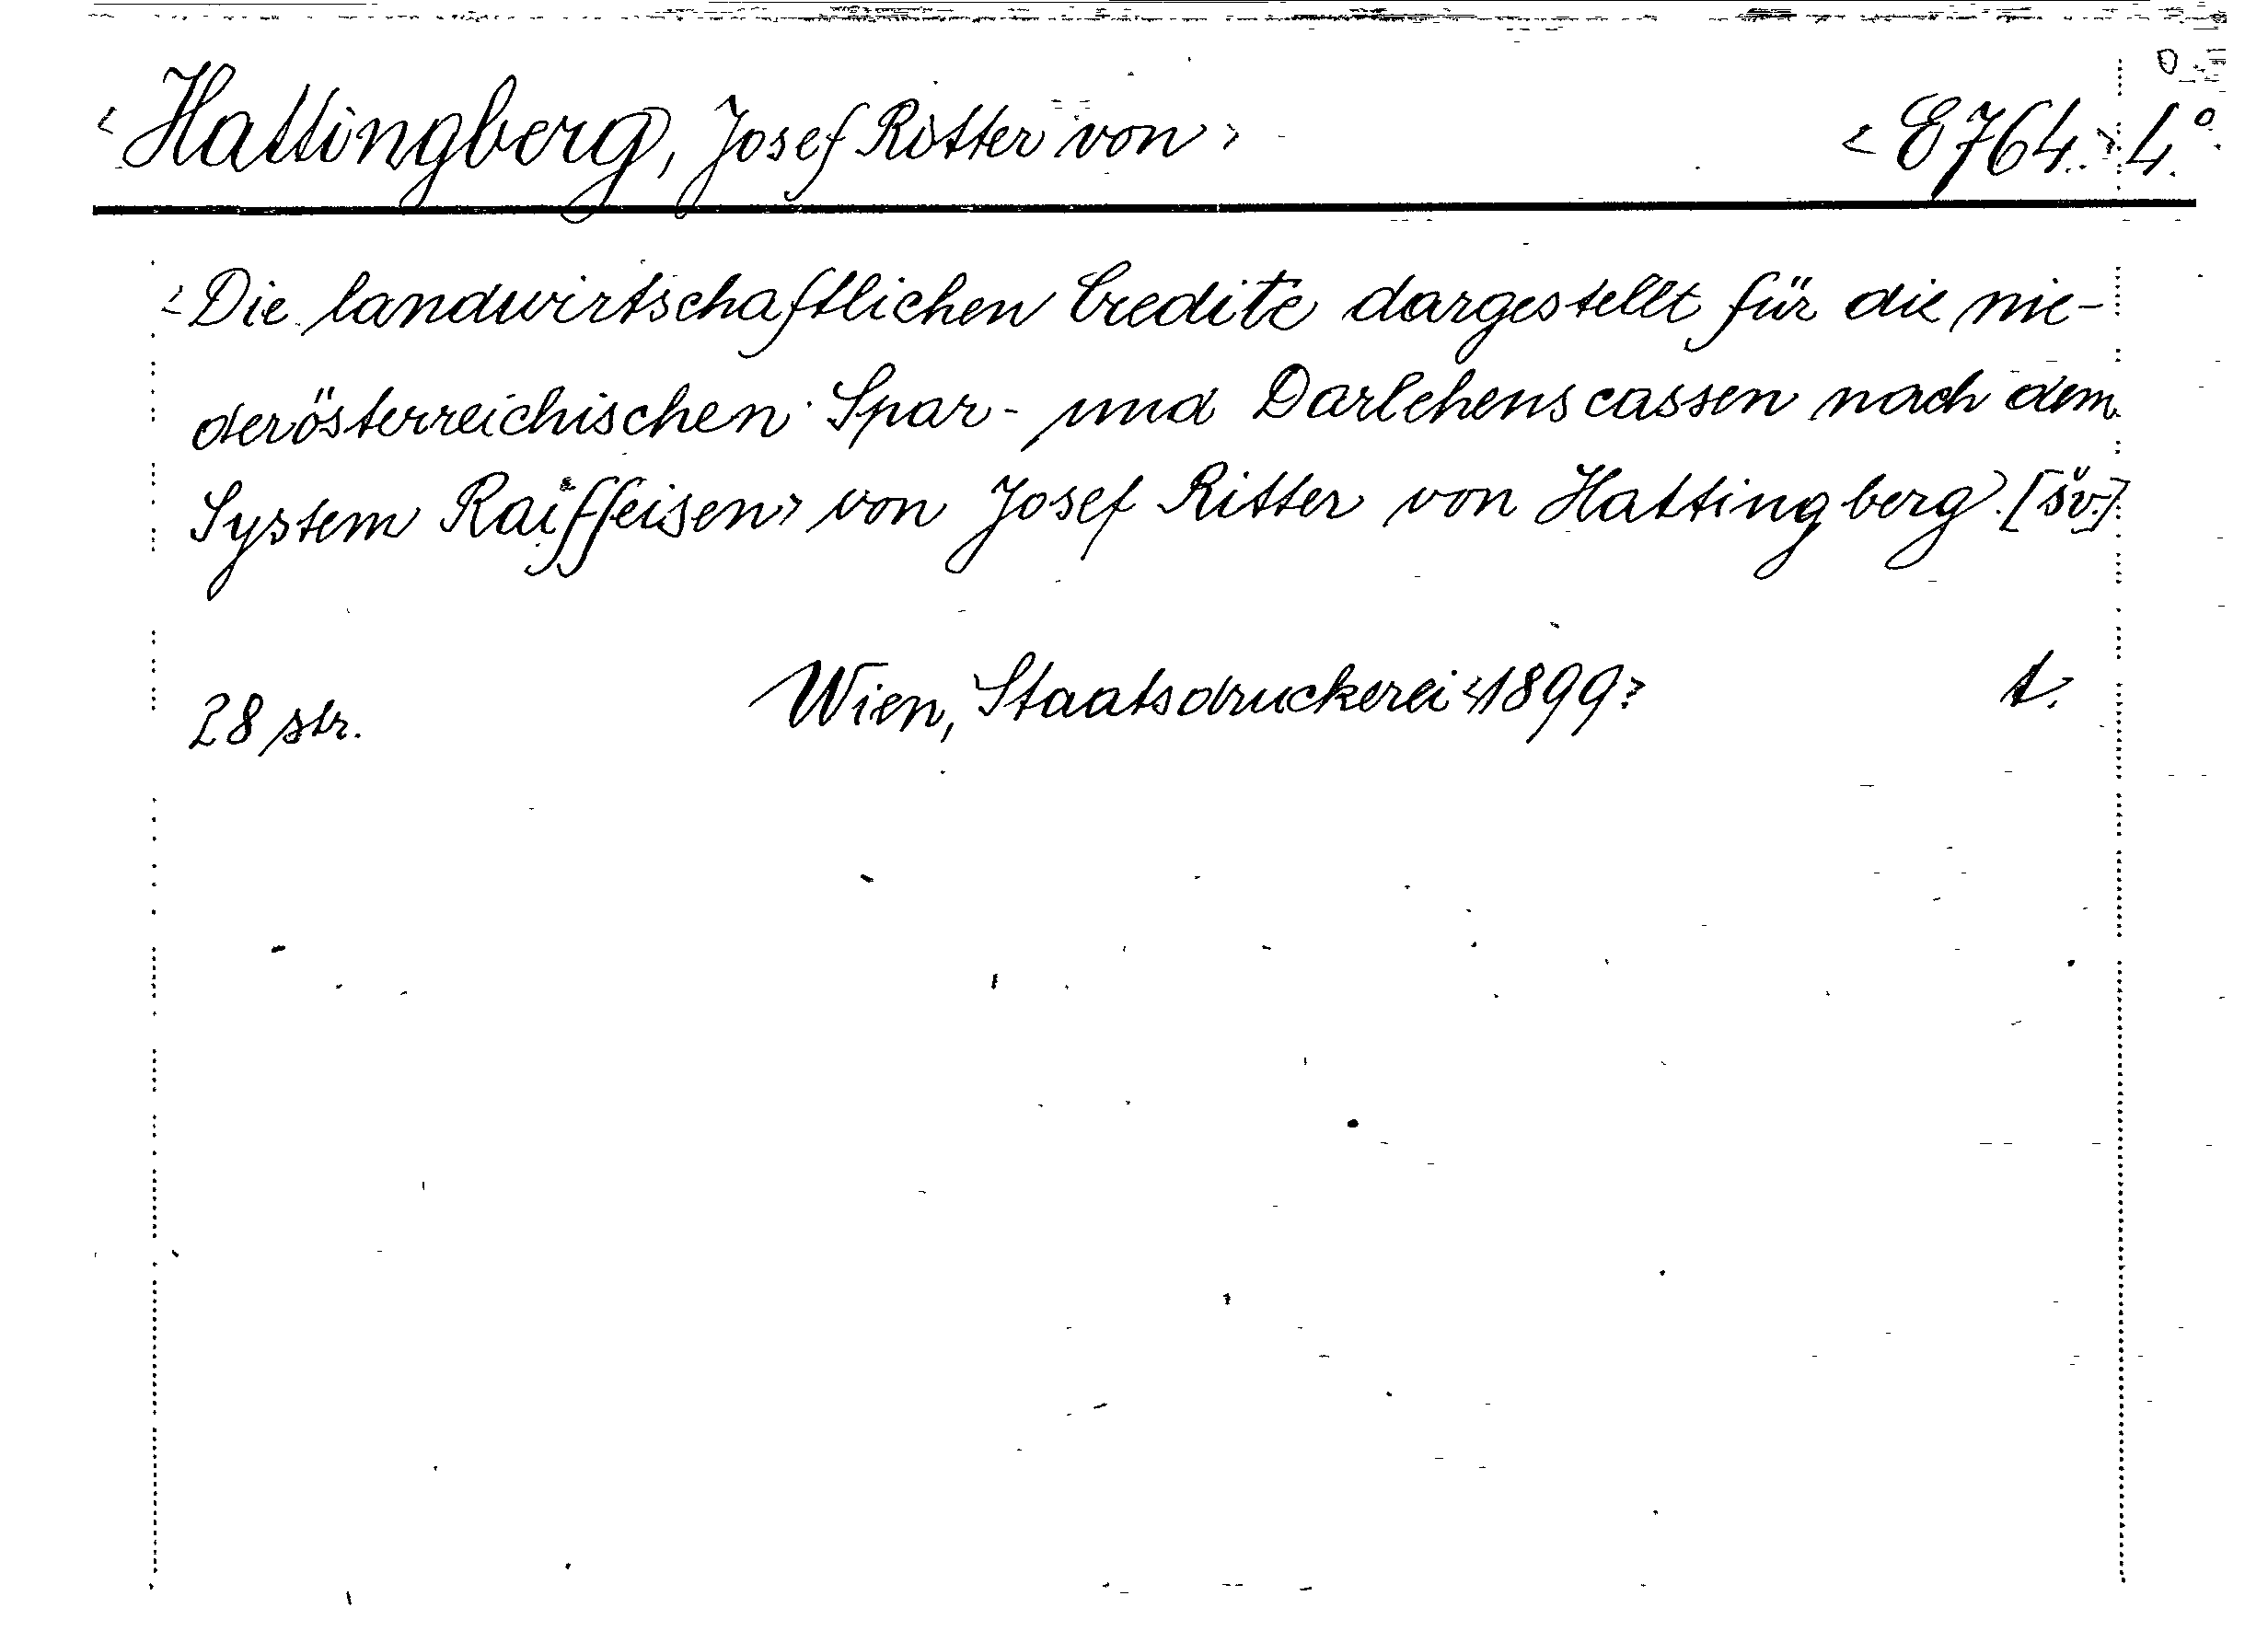 <Hattingberg, Josef Ritter von> <E764.> 4°.
<Die landwirtschaftlichen Credite dargestellt für die nie-
derösterreichischen Spar- und Darlehenscassen nach dem
System Raiffeisen> von Josef Ritter von Hattingberg. [sv.]
28 str. Wien, Staatsdruckerei <1899> t.